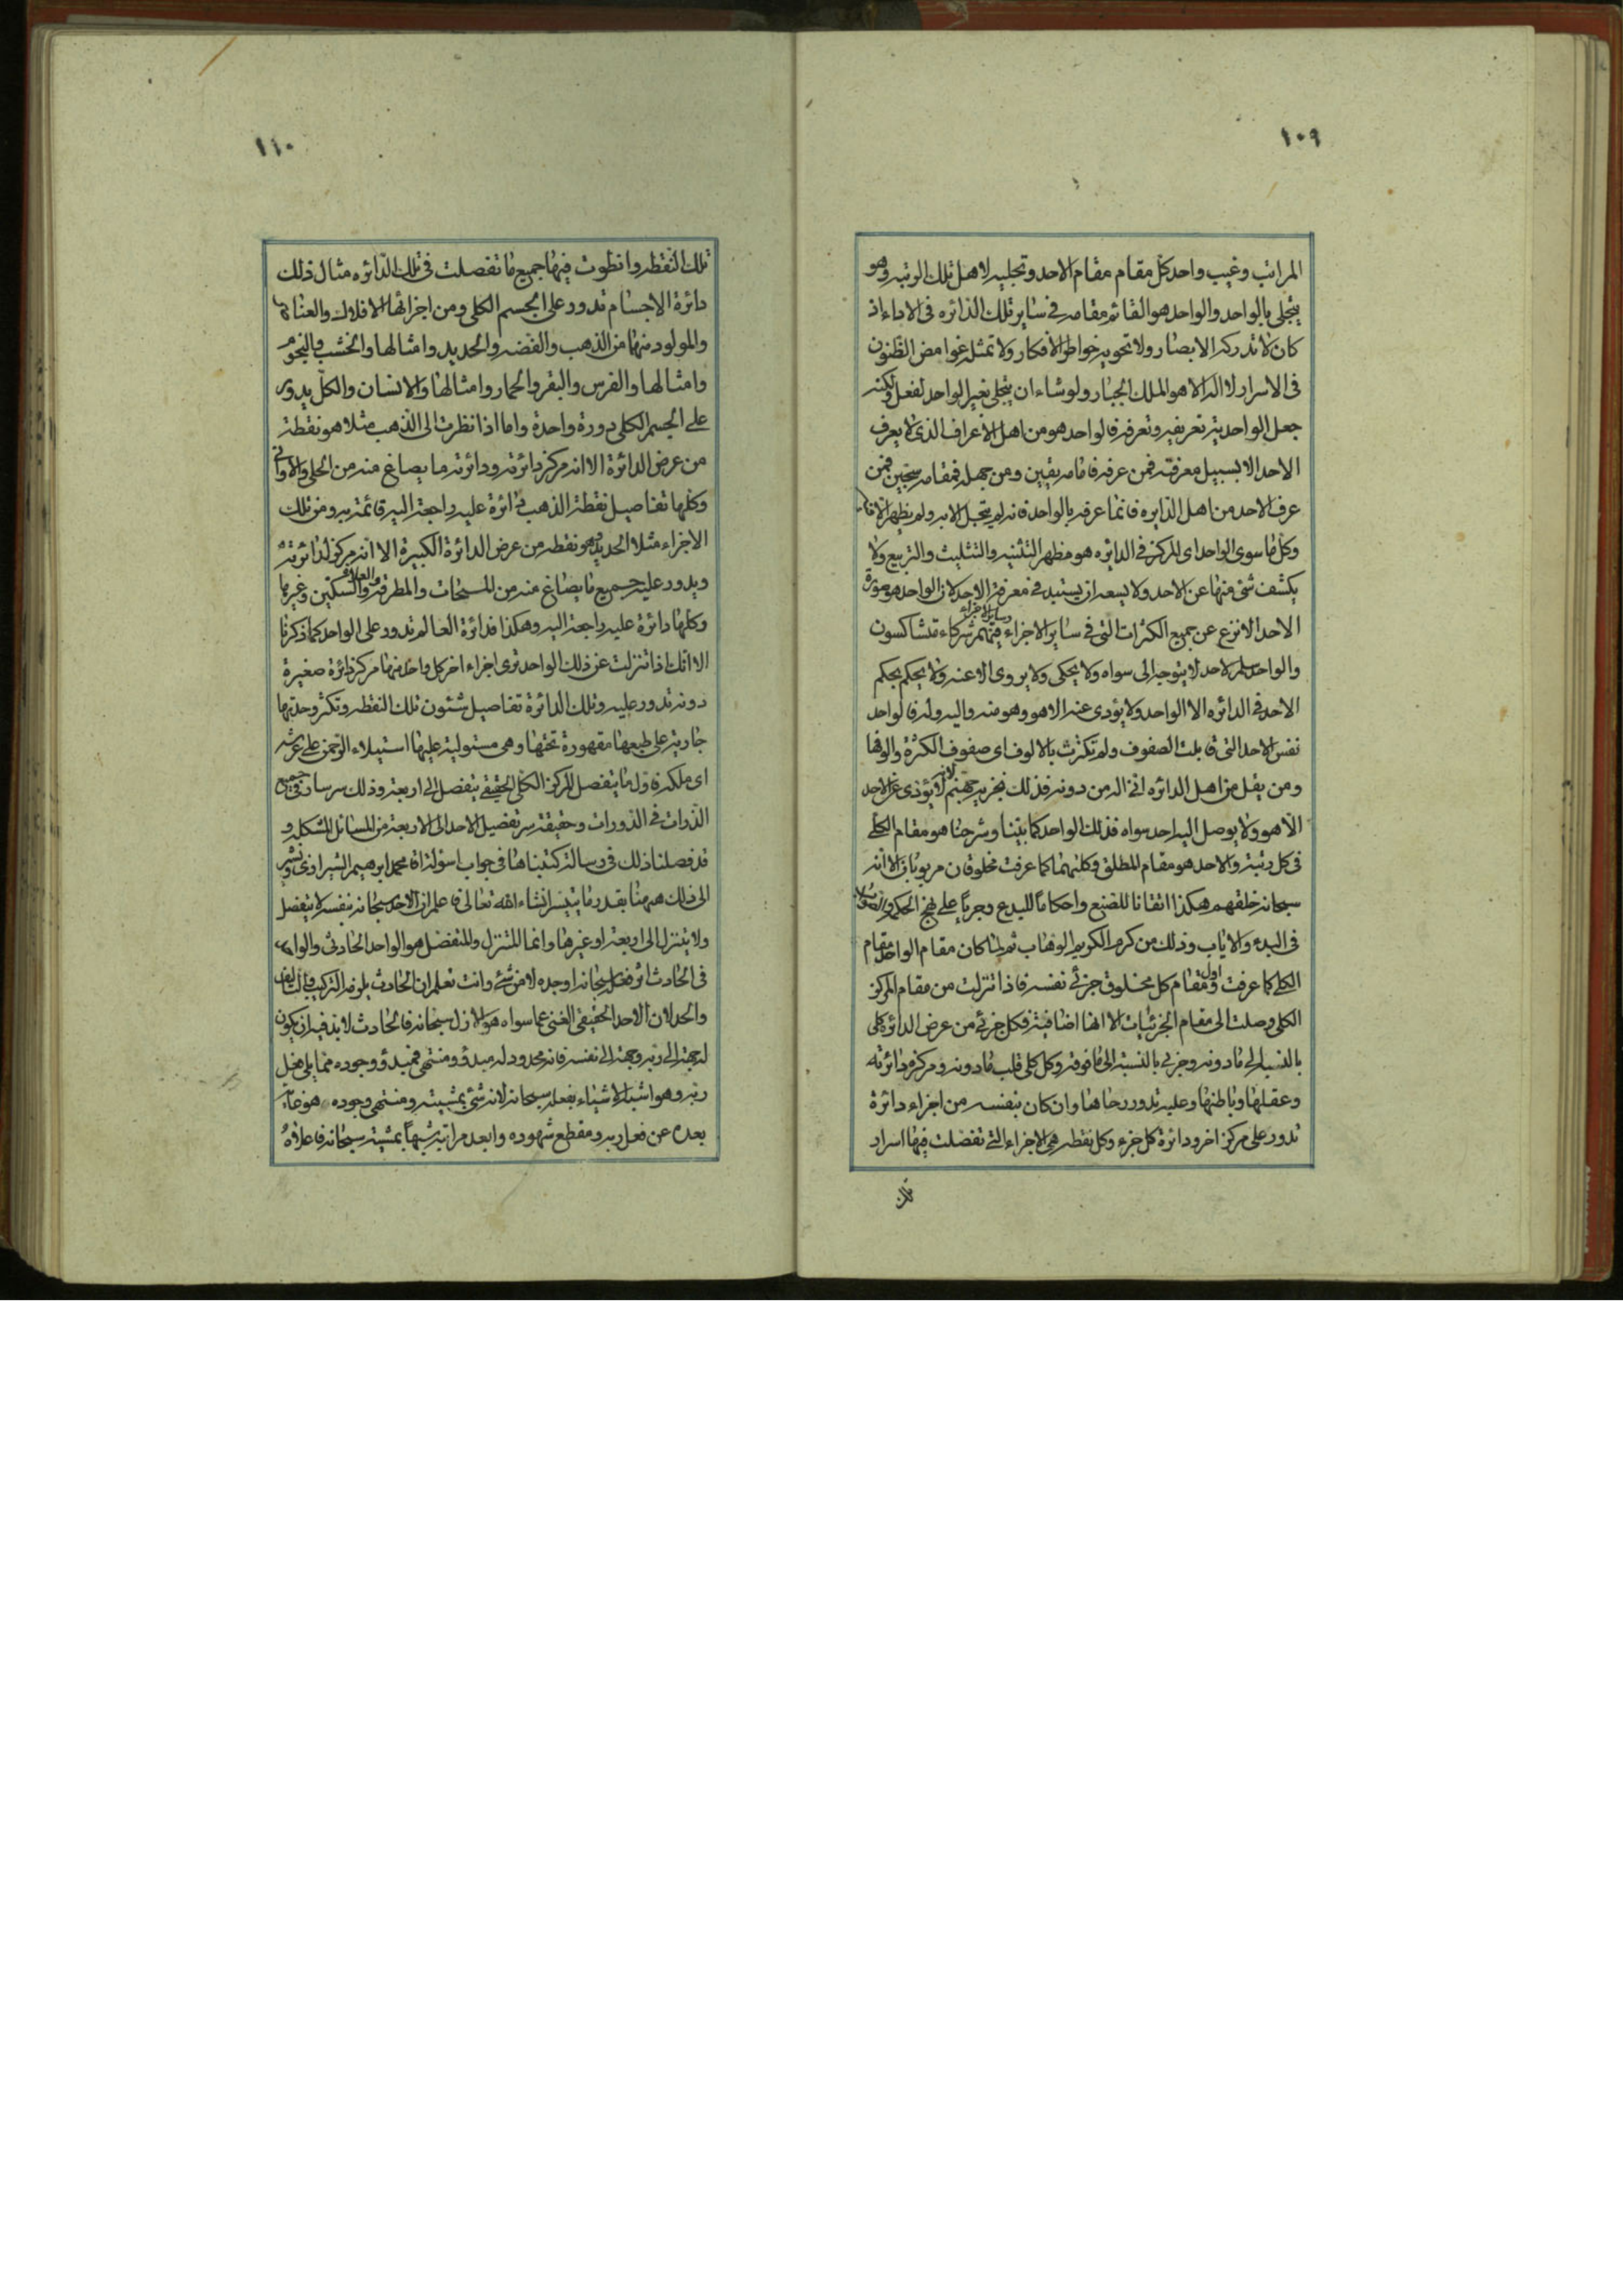 ١٠٩
المراتب وغيب واحد كل مقام مقام الاحد وتجليه لاهل تلك الرتبه وهو
يتجلى بالواحد والواحد هو القائم مقامه في ساير تلك الدائره في الاداء اذ
كان لا تدركه الابصار ولا تحويه خواطر الافكار ولا تمثله غوامض الظنون
في الاسرار لا اله الا هو الملك الجبار ولو شاء ان يتجلى بغير الواحد لفعل ولكنه
جعل الواحد يته تعريفه وتعرفه فالواحد هو من اهل الاعراف الذي لا يعرف
الاحد الا بسبيل معرفته فمن عرفه فامامه يقين ومن جهله فمقامه سجين فمن
عرف الاحد من اهل الدايره فانما عرفه بالواحد فانه لم يتجل الا به ولم يظهر الا
وكل ما سوى الواحد اى المركز في الدايره هو مظهر التثنيه والتثليث والتربيع ولا
يكشف شئ منها عن الاحد ولا يسعه ان يستبد في معرفة الاحد لان الواحد هو صورة
الاحد الانزع عن جميع الكثرات التي في ساير الاجزاء وساير الاجزاء فيهم شركاء متشاكسون
والواحد سلم لاحد لا يتوجه الى سواه ولا يحكى ولا يروى الا عنه ولا يحكم بحكم
الاحد في الدائره الا الواحد ولا يؤدى عنه الا هو وهو منه واليه وله فالواحد
نفس الاحد التي قابلت الصفوف ولم تكترث بالالوف اى صفوف الكثرة والوفها
ومن يقل من اهل الدائره اني اله من دونه فذلك نجزيه جهنم لانه لا يؤدى عن الاحد
الا هو ولا يوصل اليه احد سواه فذلك الواحد كما بيّنا وشرحنا هو مقام الكلى
في كل رتبة والاحد هو مقام المطلق وكلتهما كما عرفت مخلوقان مربوبان الا انه
سبحانه خلقهم هكذا اتقانا للصنع واحكاما للبدع وجريا على نهج الحكم
في البدء والاياب وذلك من كرم الكريم الوهاب ثم لما كان مقام الواحد مقام
الكلى كما عرفت اول ومقام كل مخلوق جزئى نفسه فاذا تنزلت من مقام المركز
الكلى وصلت الى مقام الجزئيات الا انها اضافية فكل جزئى من عرض الدائره كلى
بالنسبة الى ما دونه وجزئي بالنسبة الى ما فوقه وكل كلى قلب ما دونه ومركز دائرته
وعقلها وباطنها وعليه تدور رحاها وان كان بنفسه من اجزاء دائرة
تدور على مركز اخر ودائرة كل جزء وكل نقطه هى الاجزاء التي تفصلت فيها اسرار
تلك
١١٠
تلك النقطه وانطوت فيها جميع ما تفصلت في تلك الدائره مثال ذلك
دائرة الاجسام تدور على الجسم الكلى ومن اجزائها الافلاك والعناصر
والمولود منها من الذهب والفضه والحديد وامثالها والخشب والنجوم
وامثالها والفرس والبقر والحمار وامثالها والانسان والكل يدور
على الجسم الكلى دورة واحدة واما اذا نظرت الى الذهب مثلا هو نقطة
من عرض الدائرة الا انه مركز دائرته ودائرته ما يصاغ منه من الحلى والاوانى
وكلها تفاصيل نقطة الذهب دائرة عليه راجعة اليه قائمة به ومن تلك
الاجزاء مثلا الحديد وهو نقطه من عرض الدائرة الكبيرة الا انه مركز لدائرته
ويدور عليه جميع ما يصاغ منه من المسحات والمطرقه والعلاة والسكين وغيرها
وكلها دائرة عليه راجعة اليه وهكذا فدائرة العالم تدور على الواحد كما ذكرنا
الا انك اذا تنزلت عن ذلك الواحد ترى اجزاء اخر كل واحد منها مركز دائرة صغيرة
دونه تدور عليه وتلك الدائرة تفاصيل شئون تلك النقطه وتكثر وحدتها
جارية على طبعها مقهورة تحتها وهى مستولية عليها استيلاء الرحمن على عرشه
اى ملكه فاول ما يتفصل المركز الكلى الحقيقى يتفصل الى اربعة وذلك سر سار في جميع
الذرات في الذورات وحقيقة سر تفصيل الاحد الى الاربعة من المسائل المشكله و
قد فصلنا ذلك في رسالة كتبناها في جواب اسولة اقا محمد ابرهيم الشيرازى ونشير
الى ذلك ههنا بقدر ما يتيسر انشاء الله تعالى فاعلم ان الاحد سبحانه بنفسه لا يتفصل
ولا يتنزل الى اربعة او غيرها وانما المتنزل والمتفصل هو الواحد الحادث والواحد
في الحادث اثر فعل الله سبحانه اوجده لا من شئ وانت تعلم ان الحادث يلزمه التركيب والتاليف
والحد لان الاحد الحقيقى الغنى عما سواه هو الازل سبحانه فالحادث لابد فيه ان يكون
له جهة الى ربه وجهة الى نفسه فانه محدود له مبدؤ ومنتهى فمبدؤ وجوده مما يلى فعل
ربه وهو اشبه الاشياء بفعله سبحانه لانه شئ بمشيته ومنتهى وجوده هو غاية
بعده عن فعل ربه ومقطع شهوده وابعد مراتبه شبها بمشيته سبحانه فاعلاه